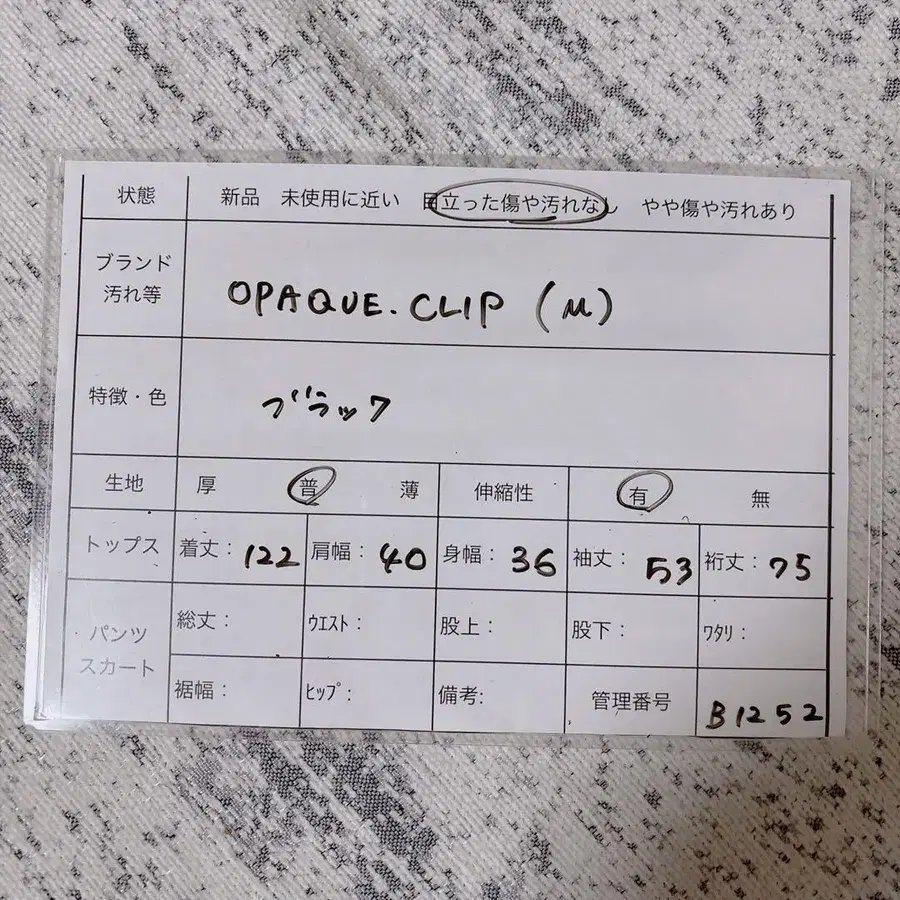 状態 新品 未使用に近い 目立った傷や汚れなし やや傷や汚れあり
ブランド
汚れ等
OPAQUE.CLIP (M)
特徴・色 ブラック
生地 厚 普 薄 伸縮性 有 無
トップス 着丈： 122 肩幅： 40 身幅： 36 袖丈： 53 裄丈： 75
パンツ
スカート
総丈： ｳｴｽﾄ： 股上： 股下： ﾜﾀﾘ：
裾幅： ﾋｯﾌﾟ： 備考: 管理番号 B1252